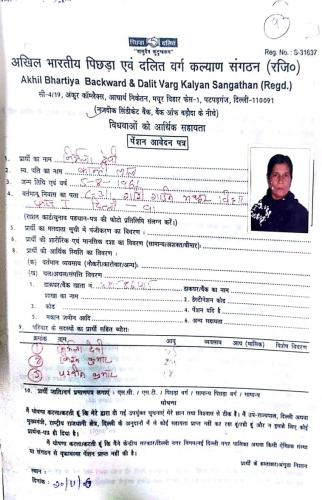 पिछड़ा दलित
"वसुधैव कुटुम्बकम"
Reg. No. : S-31637
अखिल भारतीय पिछड़ा एवं दलित वर्ग कल्याण संगठन (रजि०)
Akhil Bhartiya Backward & Dalit Varg Kalyan Sangathan (Regd.)
सी-4/19, अंकुर कॉम्प्लैक्स, आचार्य निकेतन, मयूर विहार फेस-1, पटपड़गंज, दिल्ली-110091
(नजदीक सिंडीकेट बैंक, बैंक ऑफ बड़ौदा के नीचे)
विधवाओं को आर्थिक सहायता
पेंशन आवेदन पत्र
1. प्रार्थी का नाम देवी
2. स्व. पति का नाम लाल
3. जन्म तिथि एवं वर्ष
4. वर्तमान् निवास का पता
(राशन कार्ड/चुनाव पहचान-पत्र की फोटो प्रतिलिपि संलग्न करें।)
5. प्रार्थी का मतदाता सूची में पंजीकरण का विवरण :
6. प्रार्थी की शारीरिक एवं मानसिक दशा का विवरण (सामान्य/अशक्त/बीमार):
8. प्रार्थी की आर्थिक स्थिति का विवरण :
(क) वर्तमान व्यवसाय (नौकरी/कारोबार/अन्य):
(ख) चल/अचल/संपत्ति विवरण
1. डाकघर/बैंक खाता नं. डाकघर/बैंक का नाम
शाखा का नाम 3. डेस्टीनेशन कोड
3. कोड 4. पेंशन यदि है
5. मकान जमीन आदि 6. अन्य सहायता
9. परिवार के सदस्यों का प्रार्थी सहित ब्यौरा:
क्रमांक नाम आयु व्यवसाय आय (मासिक) विशेष विवरण
1 देवी
2 कुमार
3 कुमार
10. प्रार्थी जाति/वर्ग प्रमाणपत्र संलग्न : एस.सी. / एस.टी. / पिछड़ा वर्ग / सामान्य पिछड़ा वर्ग / सामान्य
घोषणा
मैं घोषणा करता/करती हूँ कि मेरे द्वारा दी गई उपर्युक्त सूचनाएं मेरे ज्ञान तथा विश्वास से ठीक है। मैं उप-राज्यपाल, दिल्ली अथवा
मुख्यमंत्री, राष्ट्रीय राजधानी क्षेत्र, दिल्ली के अनुदानों में से कोई सहायता प्राप्त नहीं कर रहा हूँ/रही हूँ और न इसके लिए कोई
प्रार्थना-पत्र ही दिया है।
मैं घोषणा करता/करती हूँ कि मैंने केन्द्रीय सरकार/दिल्ली नगर निगम/नई दिल्ली नगर पालिका अथवा किसी ऐच्छिक संस्था
या संगठन से वृद्धावस्था पेंशन प्राप्त नहीं की है।
स्थान :
दिनांक
प्रार्थी के हस्ताक्षर/अंगूठा निशान